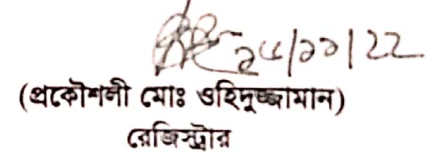 ২৫/১১/২২
(প্রকৌশলী মোঃ ওহিদুজ্জামান)
রেজিস্ট্রার